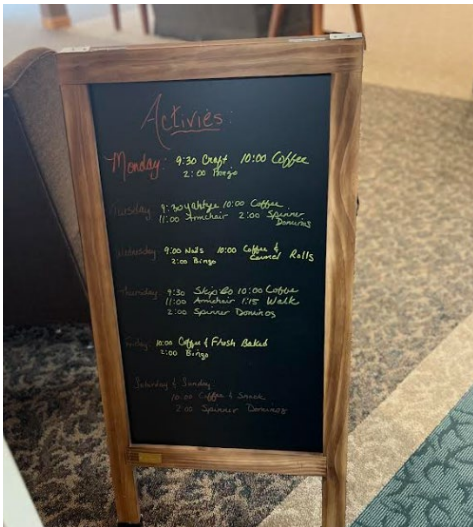 Activies:
Monday: 9:30 Craft 10:00 Coffee
2:00 Bingo
Tuesday 9:30 Yahtzee 10:00 Coffee
11:00 Armchair 2:00 Spinner
Dominos
Wednesday 9:00 Nails 10:00 Coffee &
Carmel Rolls
2:00 Bingo
Thursday: 9:30 Skipbo 10:00 Coffee
11:00 Armchair 1:15 Walk
2:00 Spinner Dominos
Friday 10:00 Coffee & Fresh Baked
2:00 Bingo
Saturday & Sunday
10:00 Coffee & Snack
2:00 Spinner Dominos